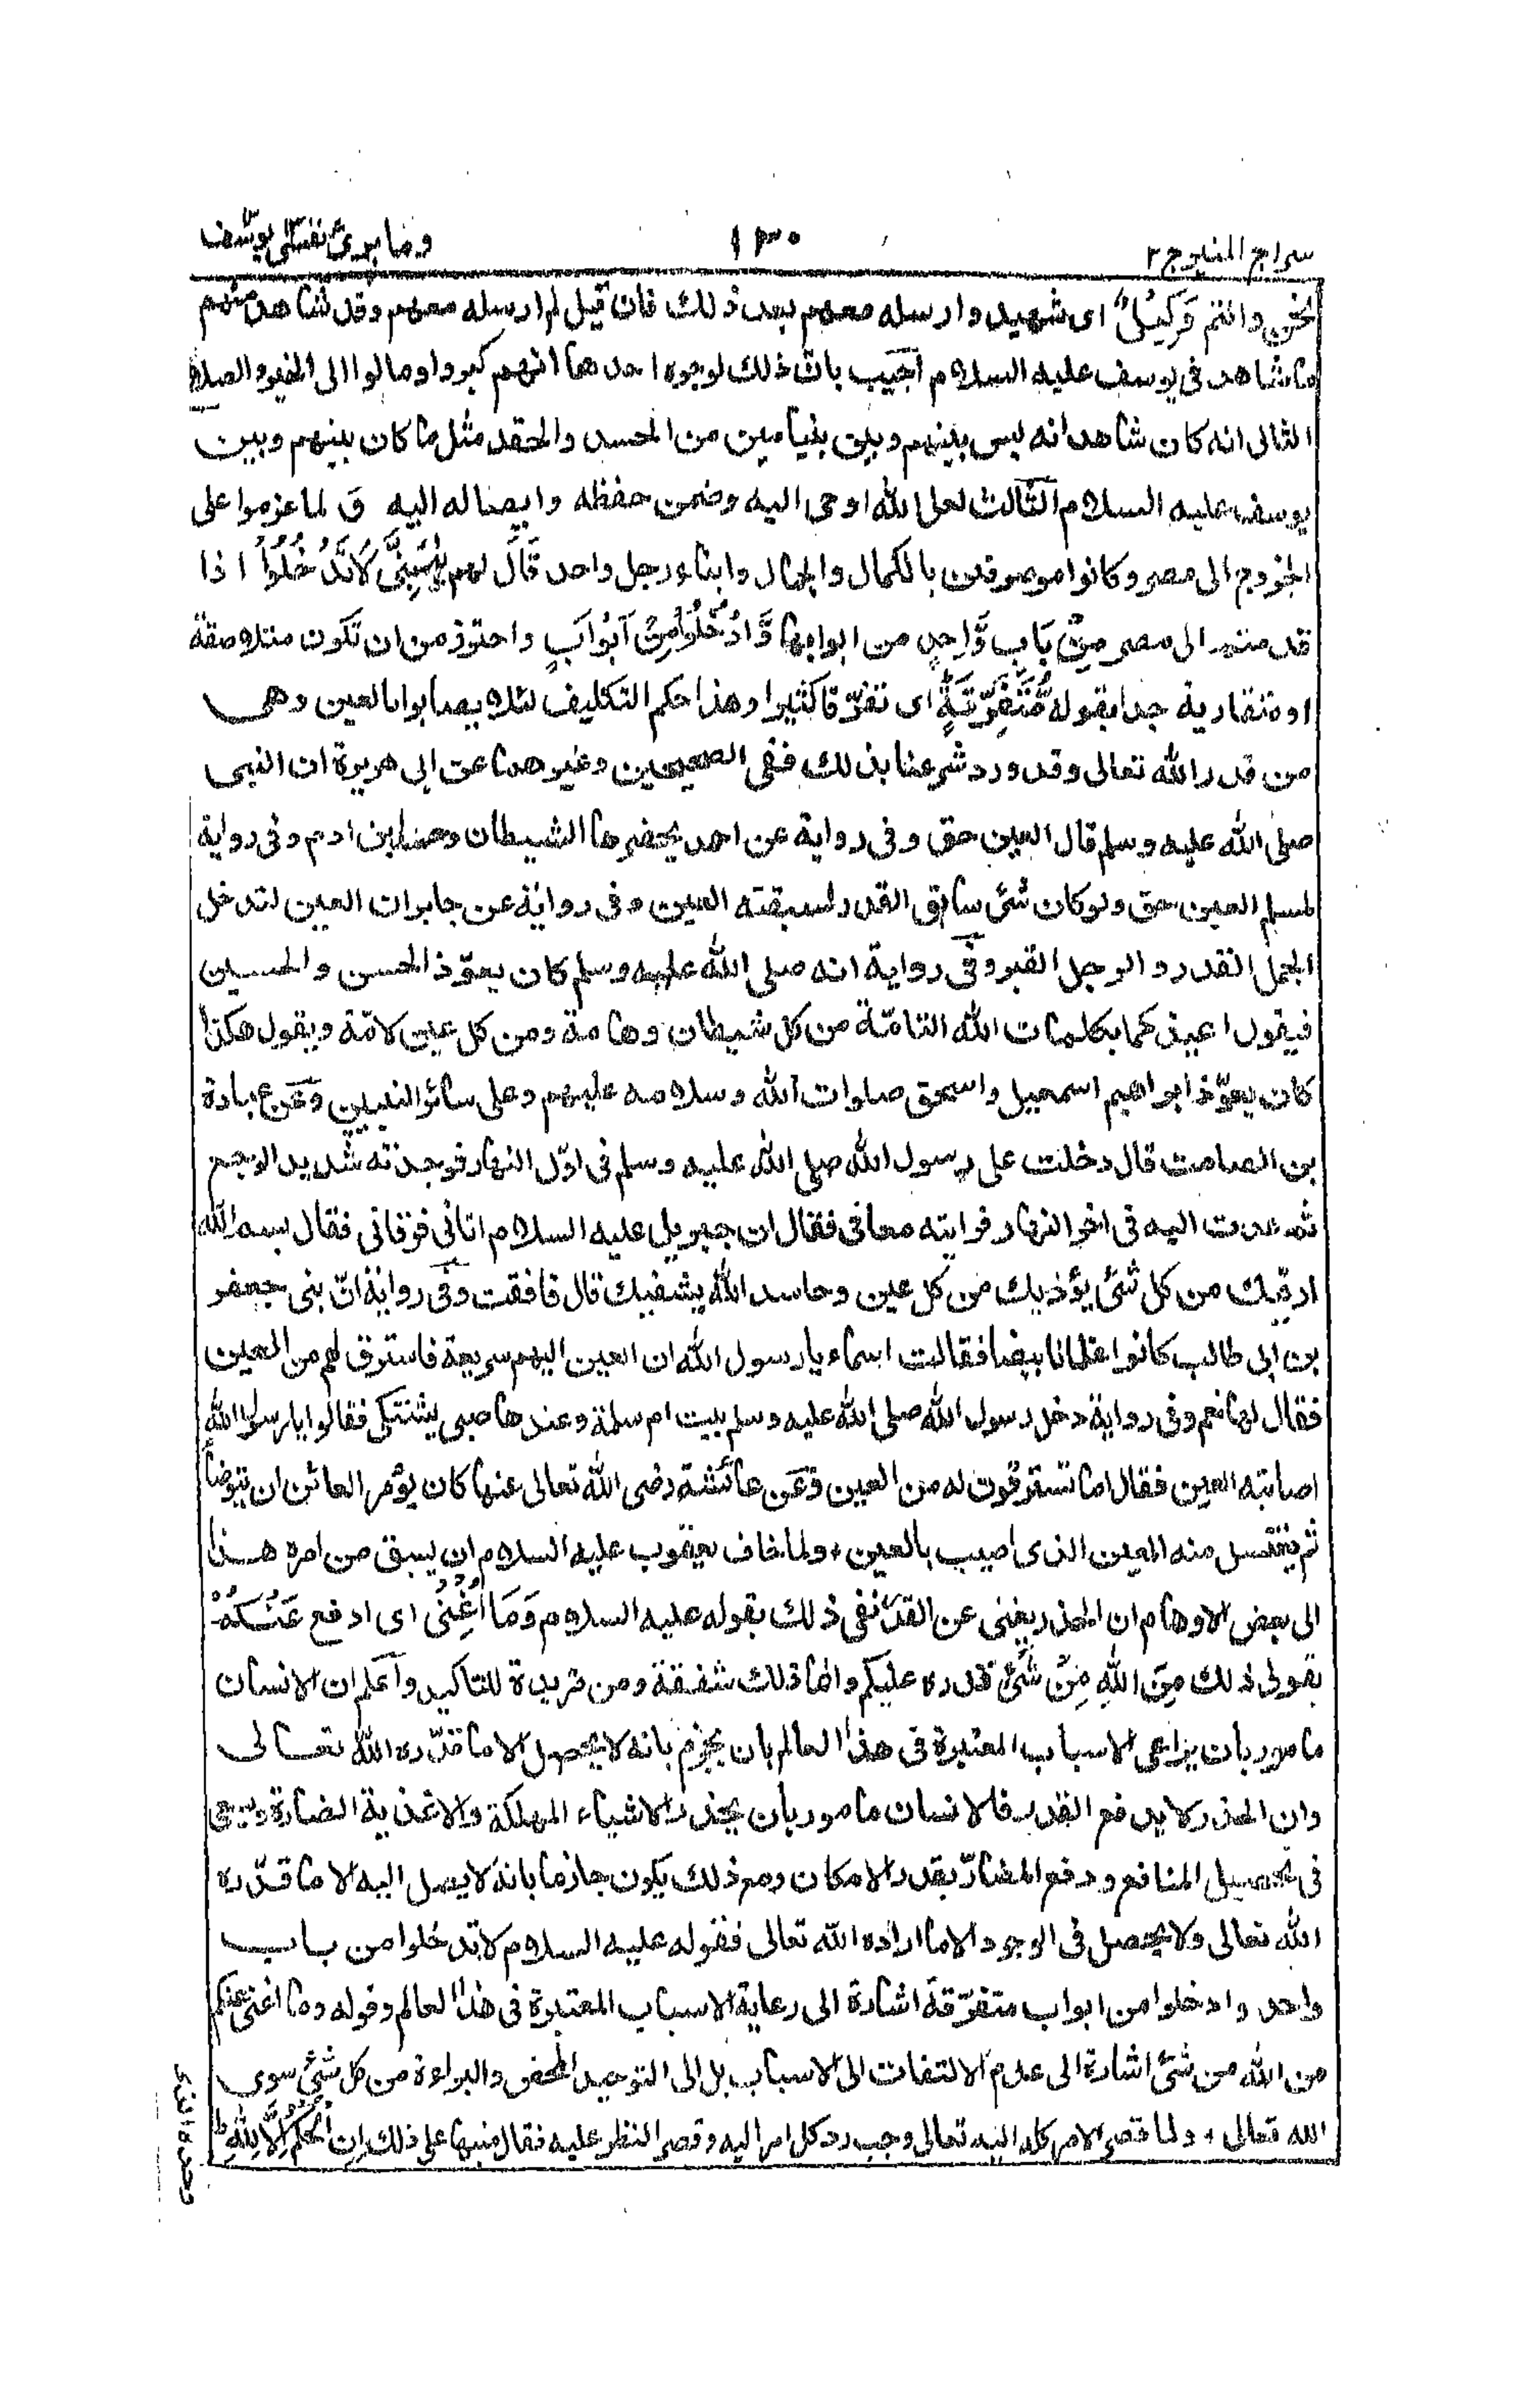 سراج المنير ج ٢
١٣٠
وما ابرئ نفسى يوسف
نحن وانتم وَكِيْلٌ اى شهيد وارسله معهم بعد ذلك فان قيل لم ارسله معهم وقد شاهد منهم
ما شاهد فى يوسف عليه السلام اجيب بان ذلك لوجوه احدها انهم كبروا ومالوا الى الخير والصلاح
الثانى انه كان شاهد انه ليس بينهم وبين بنيامين من الحسد والحقد مثل ما كان بينهم وبين
يوسف عليه السلام الثالث لعل الله اوحى اليه وضمن حفظه وايصاله اليه وَ لما عزموا على
الخروج الى مصر وكانوا موصوفين بالكمال والجمال وابناء رجل واحد قَالَ لهم يٰبَنِيَّ لَا تَدْخُلُوْا اذا
قدمتم الى مصر مِنْۢ بَابٍ وَّاحِدٍ من ابوابها وَّادْخُلُوْا مِنْ اَبْوَابٍ واحترز من ان تكون متلاصقة
او متقاربة جدا بقوله مُّتَفَرِّقَةٍ اى تفرّقا كثيرا وهذا حكم التكليف لئلا يصابوا بالعين وهى
من قدر الله تعالى وقد ورد شرعنا بذلك ففى الصحيحين وغيرهما عن ابى هريرة ان النبى
صلى الله عليه وسلم قال العين حق وفى رواية عن احمد يحضرها الشيطان وحسد ابن ادم وفى رواية
لمسلم العين حق ولو كان شئ سابق القدر لسبقته العين وفى رواية عن جابر ان العين لتدخل
الجمل القدر والرجل القبر وفى رواية انه صلى الله عليه وسلم كان يعوّذ الحسن والحسين
فيقول اعيذكما بكلمات الله التامّة من كل شيطان وهامة ومن كل عين لامّة ويقول هكذا
كان يعوّذ ابراهيم اسمعيل واسحق صلوات الله وسلامه عليهم وعلى سائر النبيين وعن عبادة
بن الصامت قال دخلت على رسول الله صلى الله عليه وسلم فى اوّل النهار فوجدته شديد الوجع
ثم عدت اليه فى اخر النهار فرايته معافى فقال ان جبريل عليه السلام اتانى فرقانى فقال بسم الله
ارقيك من كل شئ يؤذيك من كل عين وحاسد الله يشفيك قال فافقت وفى رواية انّ بنى جعفر
بن ابى طالب كانوا غلمانا بيضا فقالت اسماء يا رسول الله ان العين اليهم سريعة فاسترق لهم من العين
فقال لها نعم وفى رواية دخل رسول الله صلى الله عليه وسلم بيت ام سلمة وعندها صبى يشتكى فقالوا يا رسول الله
اصابته العين فقال اما تسترقون له من العين وعن عائشة رضى الله تعالى عنها كان يؤمر العائن ان يتوضأ
ثم يغتسل منه المعين الذى اصيب بالعين، ولما خاف يعقوب عليه السلام ان يسبق من امره هذا
الى بعض الاوهام ان الحذر يغنى عن القدر نفى ذلك بقوله عليه السلام وَمَا اُغْنِيْ اى ادفع عَنْكُمْ
بقولى ذلك مِنَ اللهِ مِنْ شَيْءٍ قدره عليكم وانما ذلك شفقة ومن مزيدة للتاكيد واعلم ان الانسان
مامور بان يراعى الاسباب المعتبرة فى هذا العالم بان يجزم بانه لا يحصل الا ما قدّره الله تعالى
وان الحذر لا يدفع القدر فالانسان مامور بان يحذر الاشياء المهلكة والاغذية الضارة ويسعى
فى تحصيل المنافع ودفع المضارّ بقدر الامكان ومع ذلك يكون جازما بانه لا يصل اليه الا ما قدّره
الله تعالى ولا يحصل فى الوجود الا ما اراده الله تعالى فقوله عليه السلام لا تدخلوا من باب
واحد وادخلوا من ابواب متفرّقة اشارة الى رعاية الاسباب المعتبرة فى هذا العالم وقوله وما اغنى عنكم
من الله من شئ اشارة الى عدم الالتفات الى الاسباب بل الى التوحيد المحض والبراءة من كل شئ سوى
الله تعالى، ولما قصر الامر كله اليه تعالى وجب رد كل امر اليه وقصر النظر عليه فقال منبها على ذلك اِنِ الْحُكْمُ اِلَّا لِلّٰهِ ط
وحده الذى